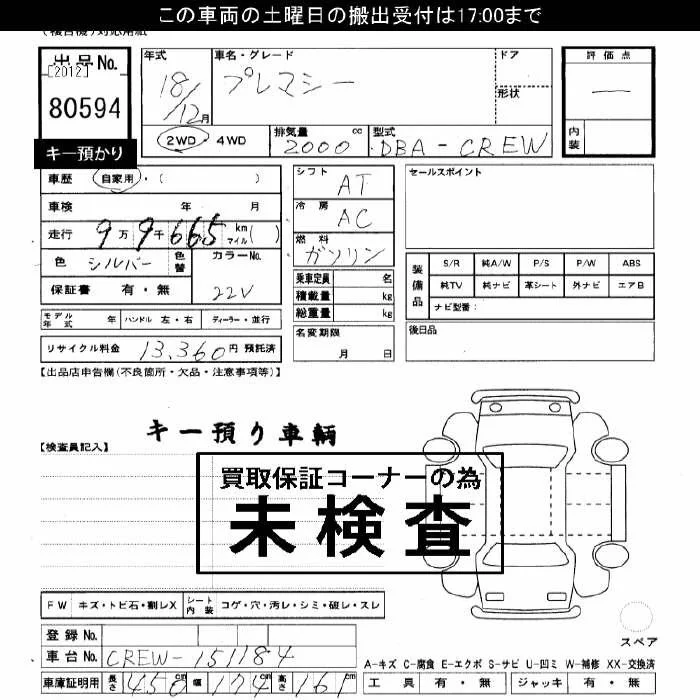 この車両の土曜日の搬出受付は17:00まで
出品No.
[2012]
80594
キー預かり
年式
18/12月
車名・グレード
プレマシー
ドア
形状
評価点
内装
2WD・4WD
排気量 cc
2000
型式
DBA-CREW
車歴 自家用・( )
車検 年 月
走行 9万9千665 km マイル( )
色 シルバー 色替
カラーNo.
22V
保証書 有・無
モデル年式 年 ハンドル 左・右 ディーラー・並行
リサイクル料金 13,360円 預託済
シフト
AT
冷房
AC
燃料
ガソリン
乗車定員 名
積載量 kg
総重量 kg
名変期限
月 日
セールスポイント
装備品
S/R 純A/W P/S P/W ABS
純TV 純ナビ 革シート 外ナビ エアB
ナビ型番:
後日品
【出品店申告欄(不良箇所・欠品・注意事項等)】
キー預り車輌
【検査員記入】
買取保証コーナーの為
未検査
FW キズ・トビ石・割レX シート内装 コゲ・穴・汚レ・シミ・破レ・スレ
登録No.
車台No. CREW-151184
車庫証明用 長さ 450cm 幅 174cm 高さ 161cm
スペア
A-キズ C-腐食 E-エクボ S-サビ U-凹ミ W-補修 XX-交換済
工具 有・無 ジャッキ 有・無